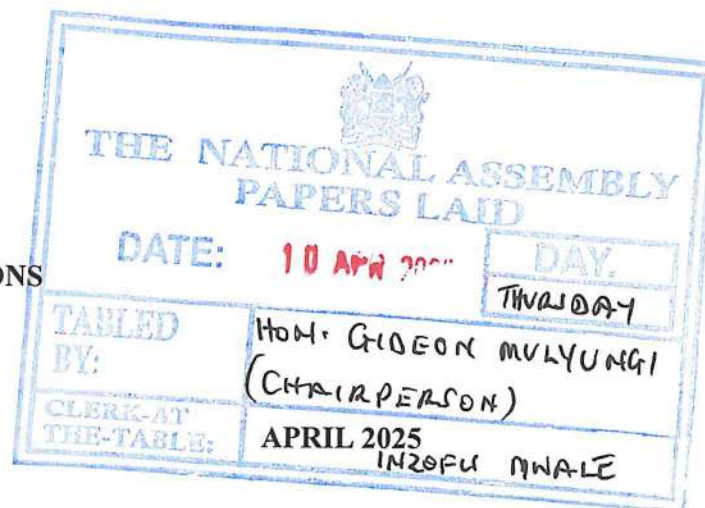 THE NATIONAL ASSEMBLY
PAPERS LAID
DATE: 10 APR DAY.
THURSDAY
ONS
TABLED BY: HON. GIDEON MULYUNGI
(CHAIRPERSON)
CLERK-AT THE-TABLE: APRIL 2025
INZOFU MWALE